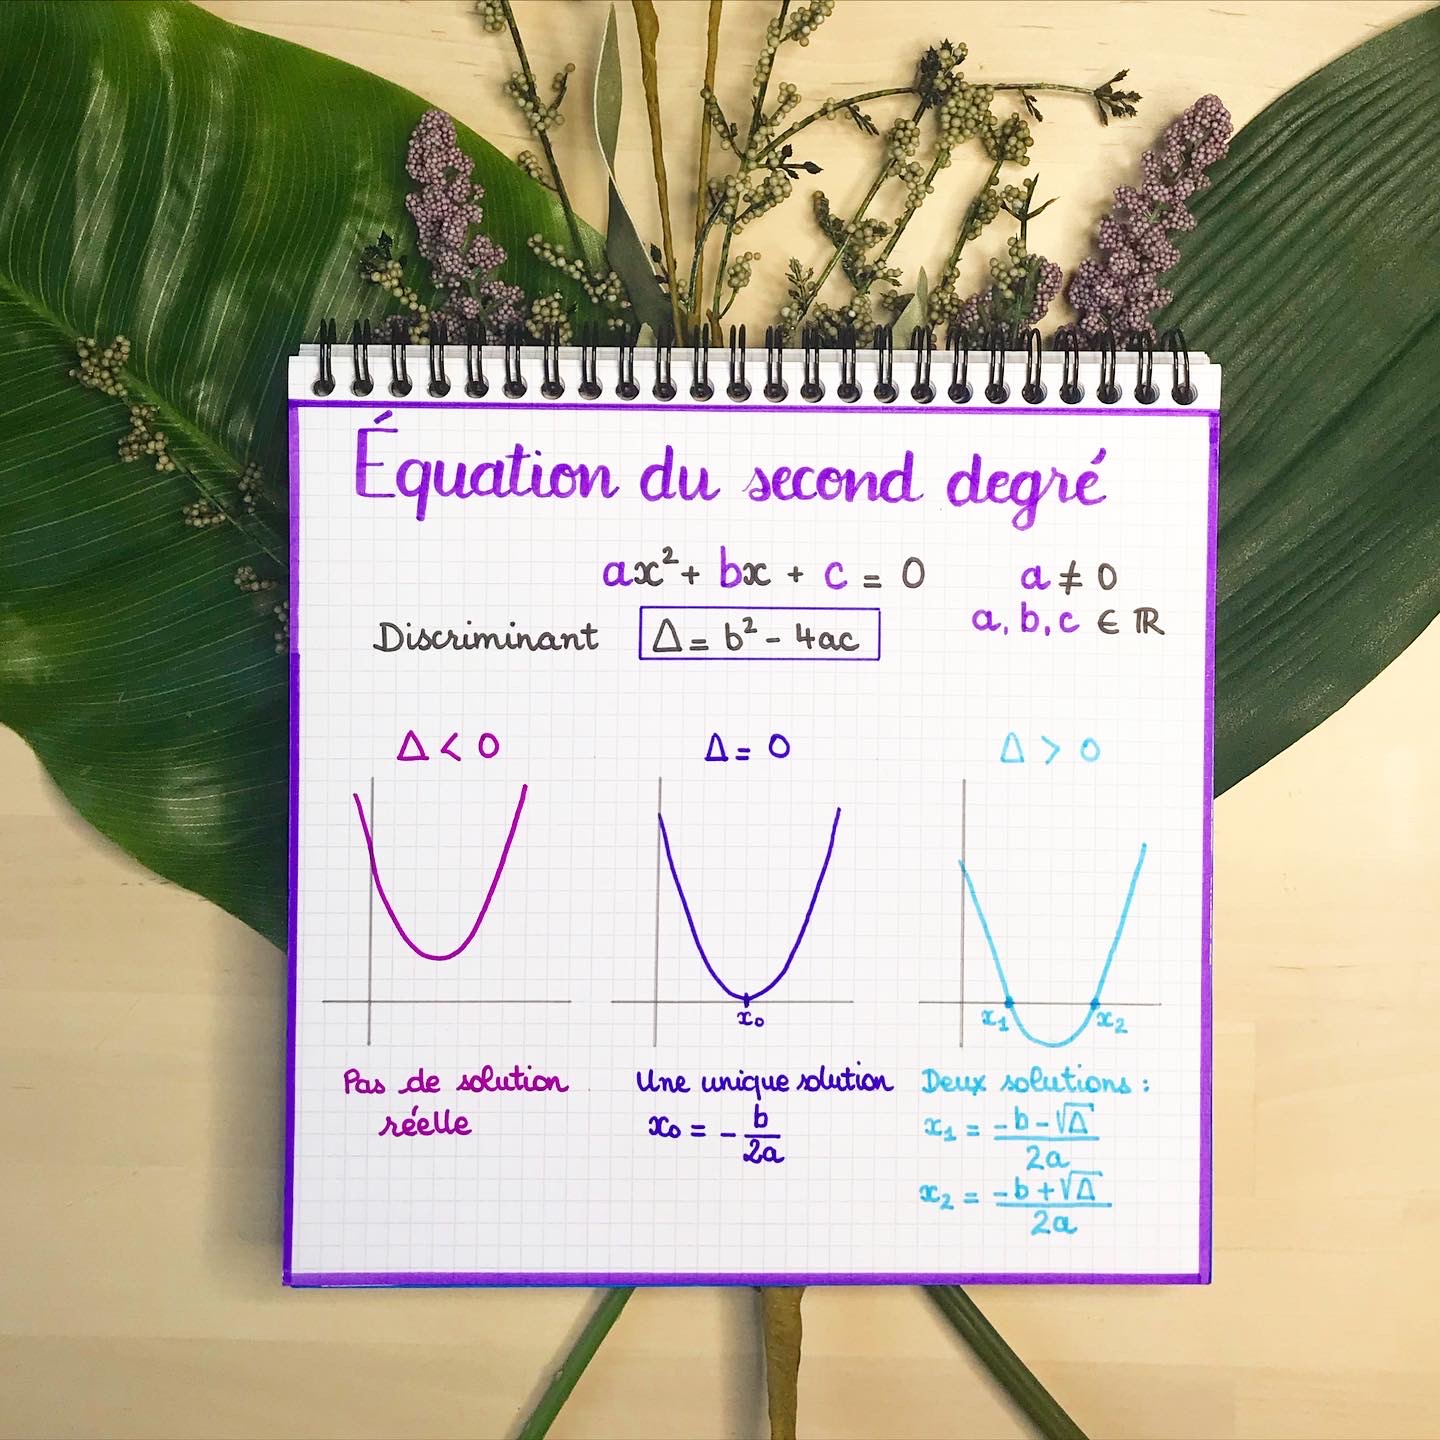 Équation du second degré
ax² + bx + c = 0
a ≠ 0
a, b, c ∈ ℝ
Discriminant
Δ = b² - 4ac
Δ < 0
Pas de solution
réelle
Δ = 0
x₀
Une unique solution
x₀ = - b/2a
Δ > 0
x₁ x₂
Deux solutions :
x₁ = (-b - √Δ)/2a
x₂ = (-b + √Δ)/2a